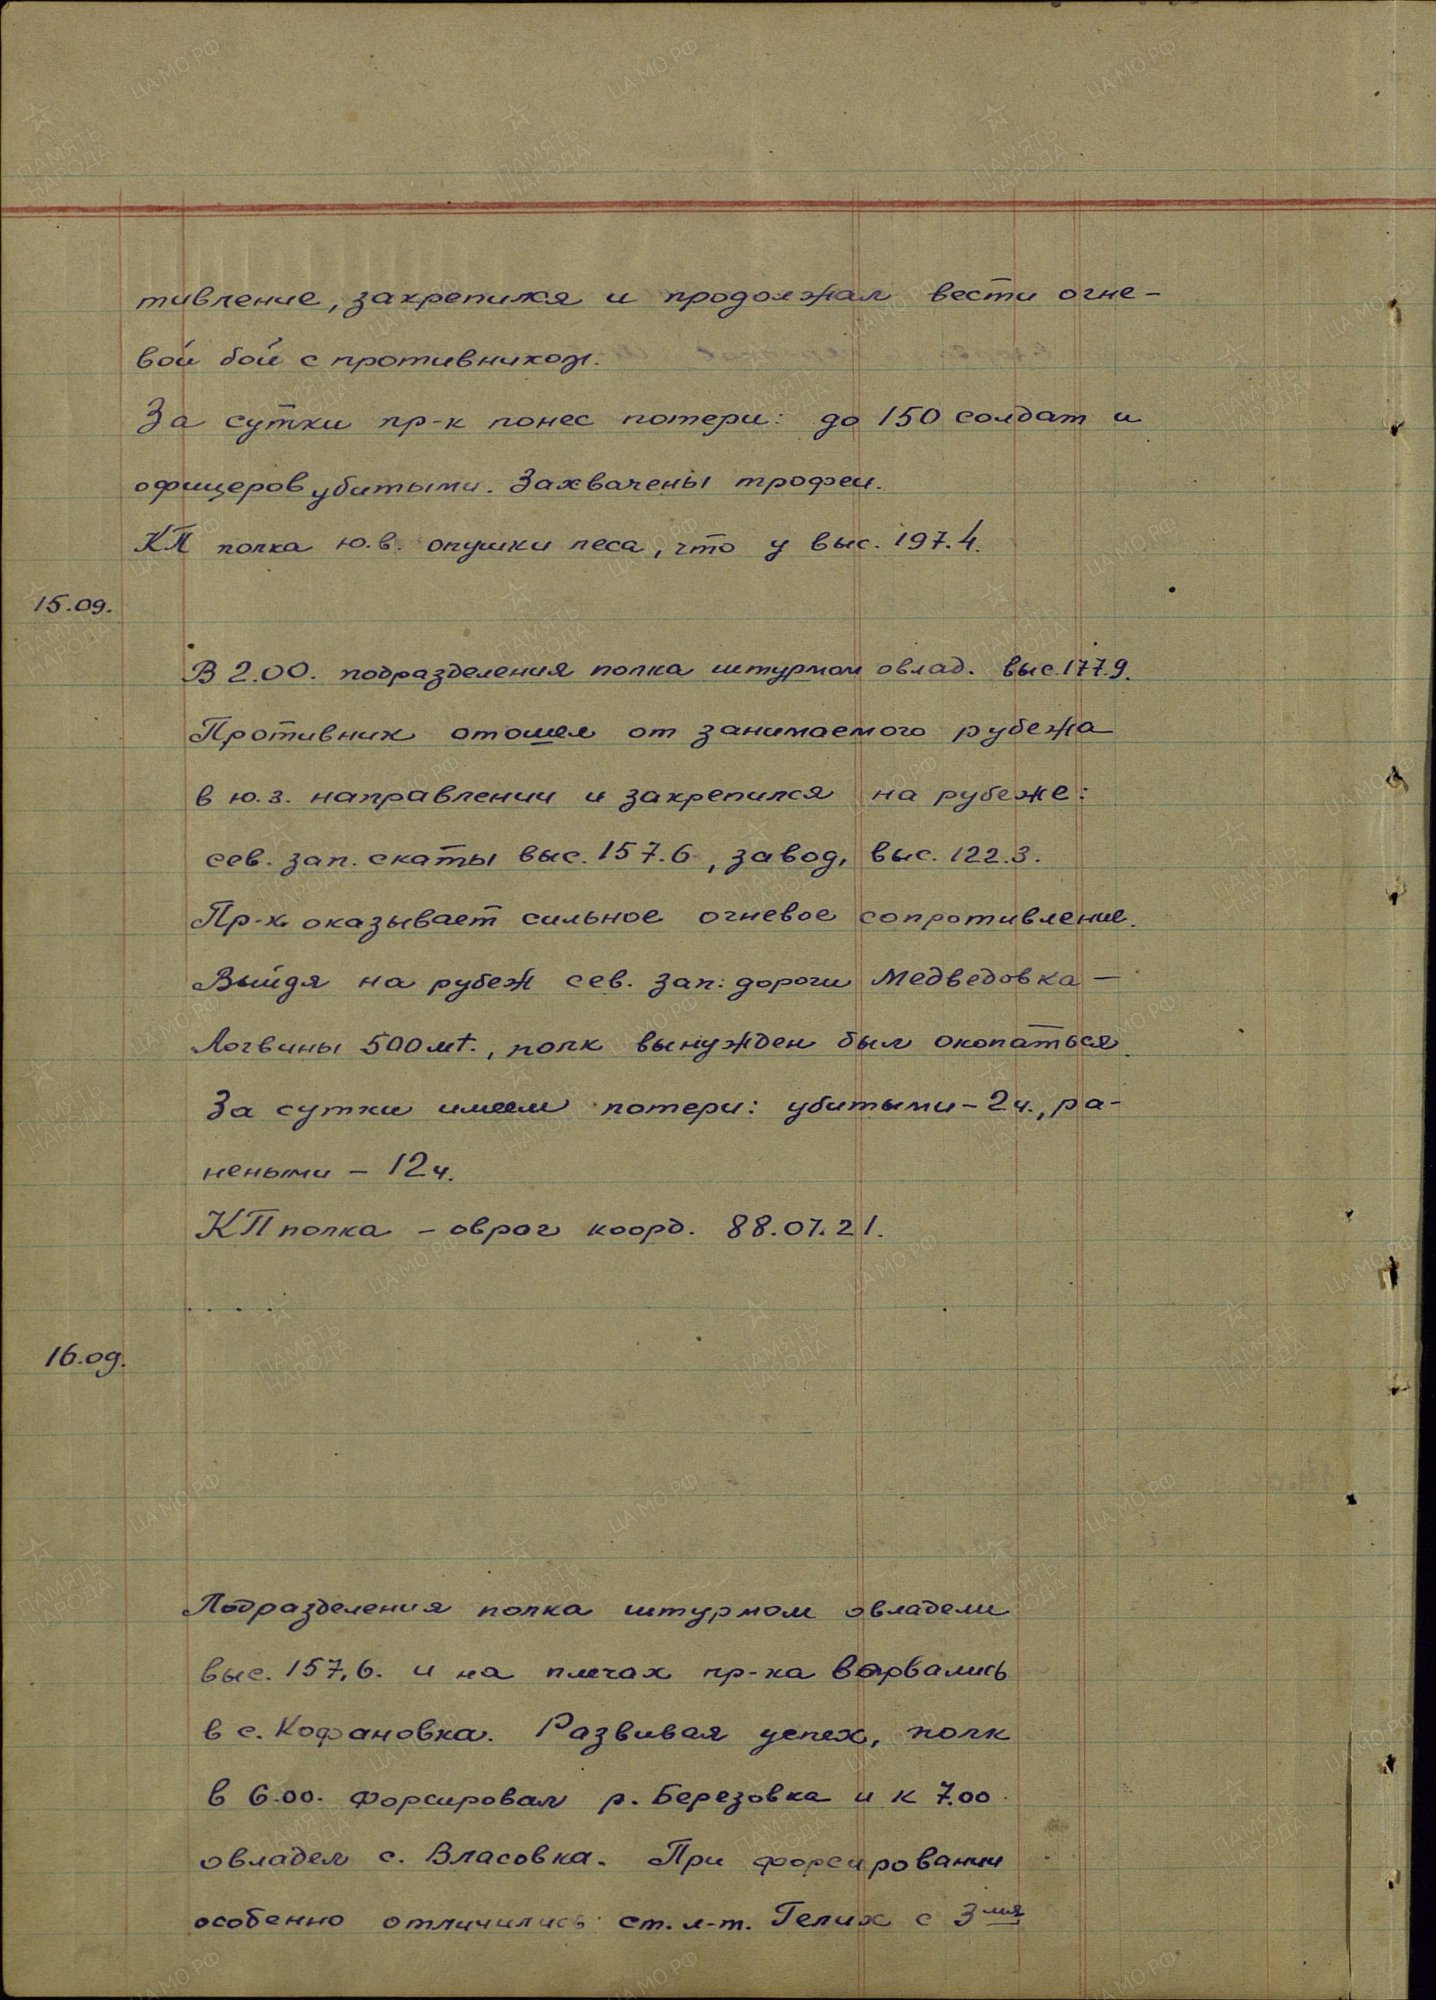 тивление, закрепился и продолжал вести огне-
вой бой с противником.
За сутки пр-к понес потери: до 150 солдат и
офицеров убитыми. Захвачены трофеи.
КП полка ю.в. опушки леса, что у выс. 197.4.
15.09.
В 2.00. подразделения полка штурмом овлад. выс. 177.9.
Противник отошел от занимаемого рубежа
в ю.з. направлении и закрепился на рубеже:
сев. зап. скаты выс. 157.6, завод, выс. 122.3.
Пр-к оказывает сильное огневое сопротивление.
Выйдя на рубеж сев. зап. дороги Медведовка –
Логвины 500 мt., полк вынужден был окопаться.
За сутки имеем потери: убитыми – 2 ч., ра-
неными – 12 ч.
КП полка – овраг коорд. 88.07.21.
. . . .
16.09.
Подразделения полка штурмом овладели
выс. 157,6. и на плечах пр-ка ворвались
в с. Кофановка. Развивая успех, полк
в 6.00. форсировал р. Березовка и к 7.00
овладел с. Власовка. При форсировании
особенно отличились ст. л-т. Гелих с 3мя
ЦА МО РФ
ПАМЯТЬ НАРОДА